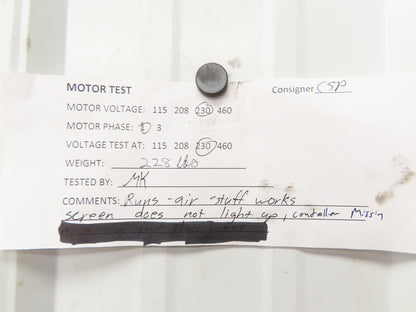 MOTOR TEST Consigner CSP
MOTOR VOLTAGE: 115 208 230 460
MOTOR PHASE: 1 3
VOLTAGE TEST AT: 115 208 230 460
WEIGHT: 228 lbs
TESTED BY: MK
COMMENTS: Runs - air stuff works
screen does not light up, controller Missin